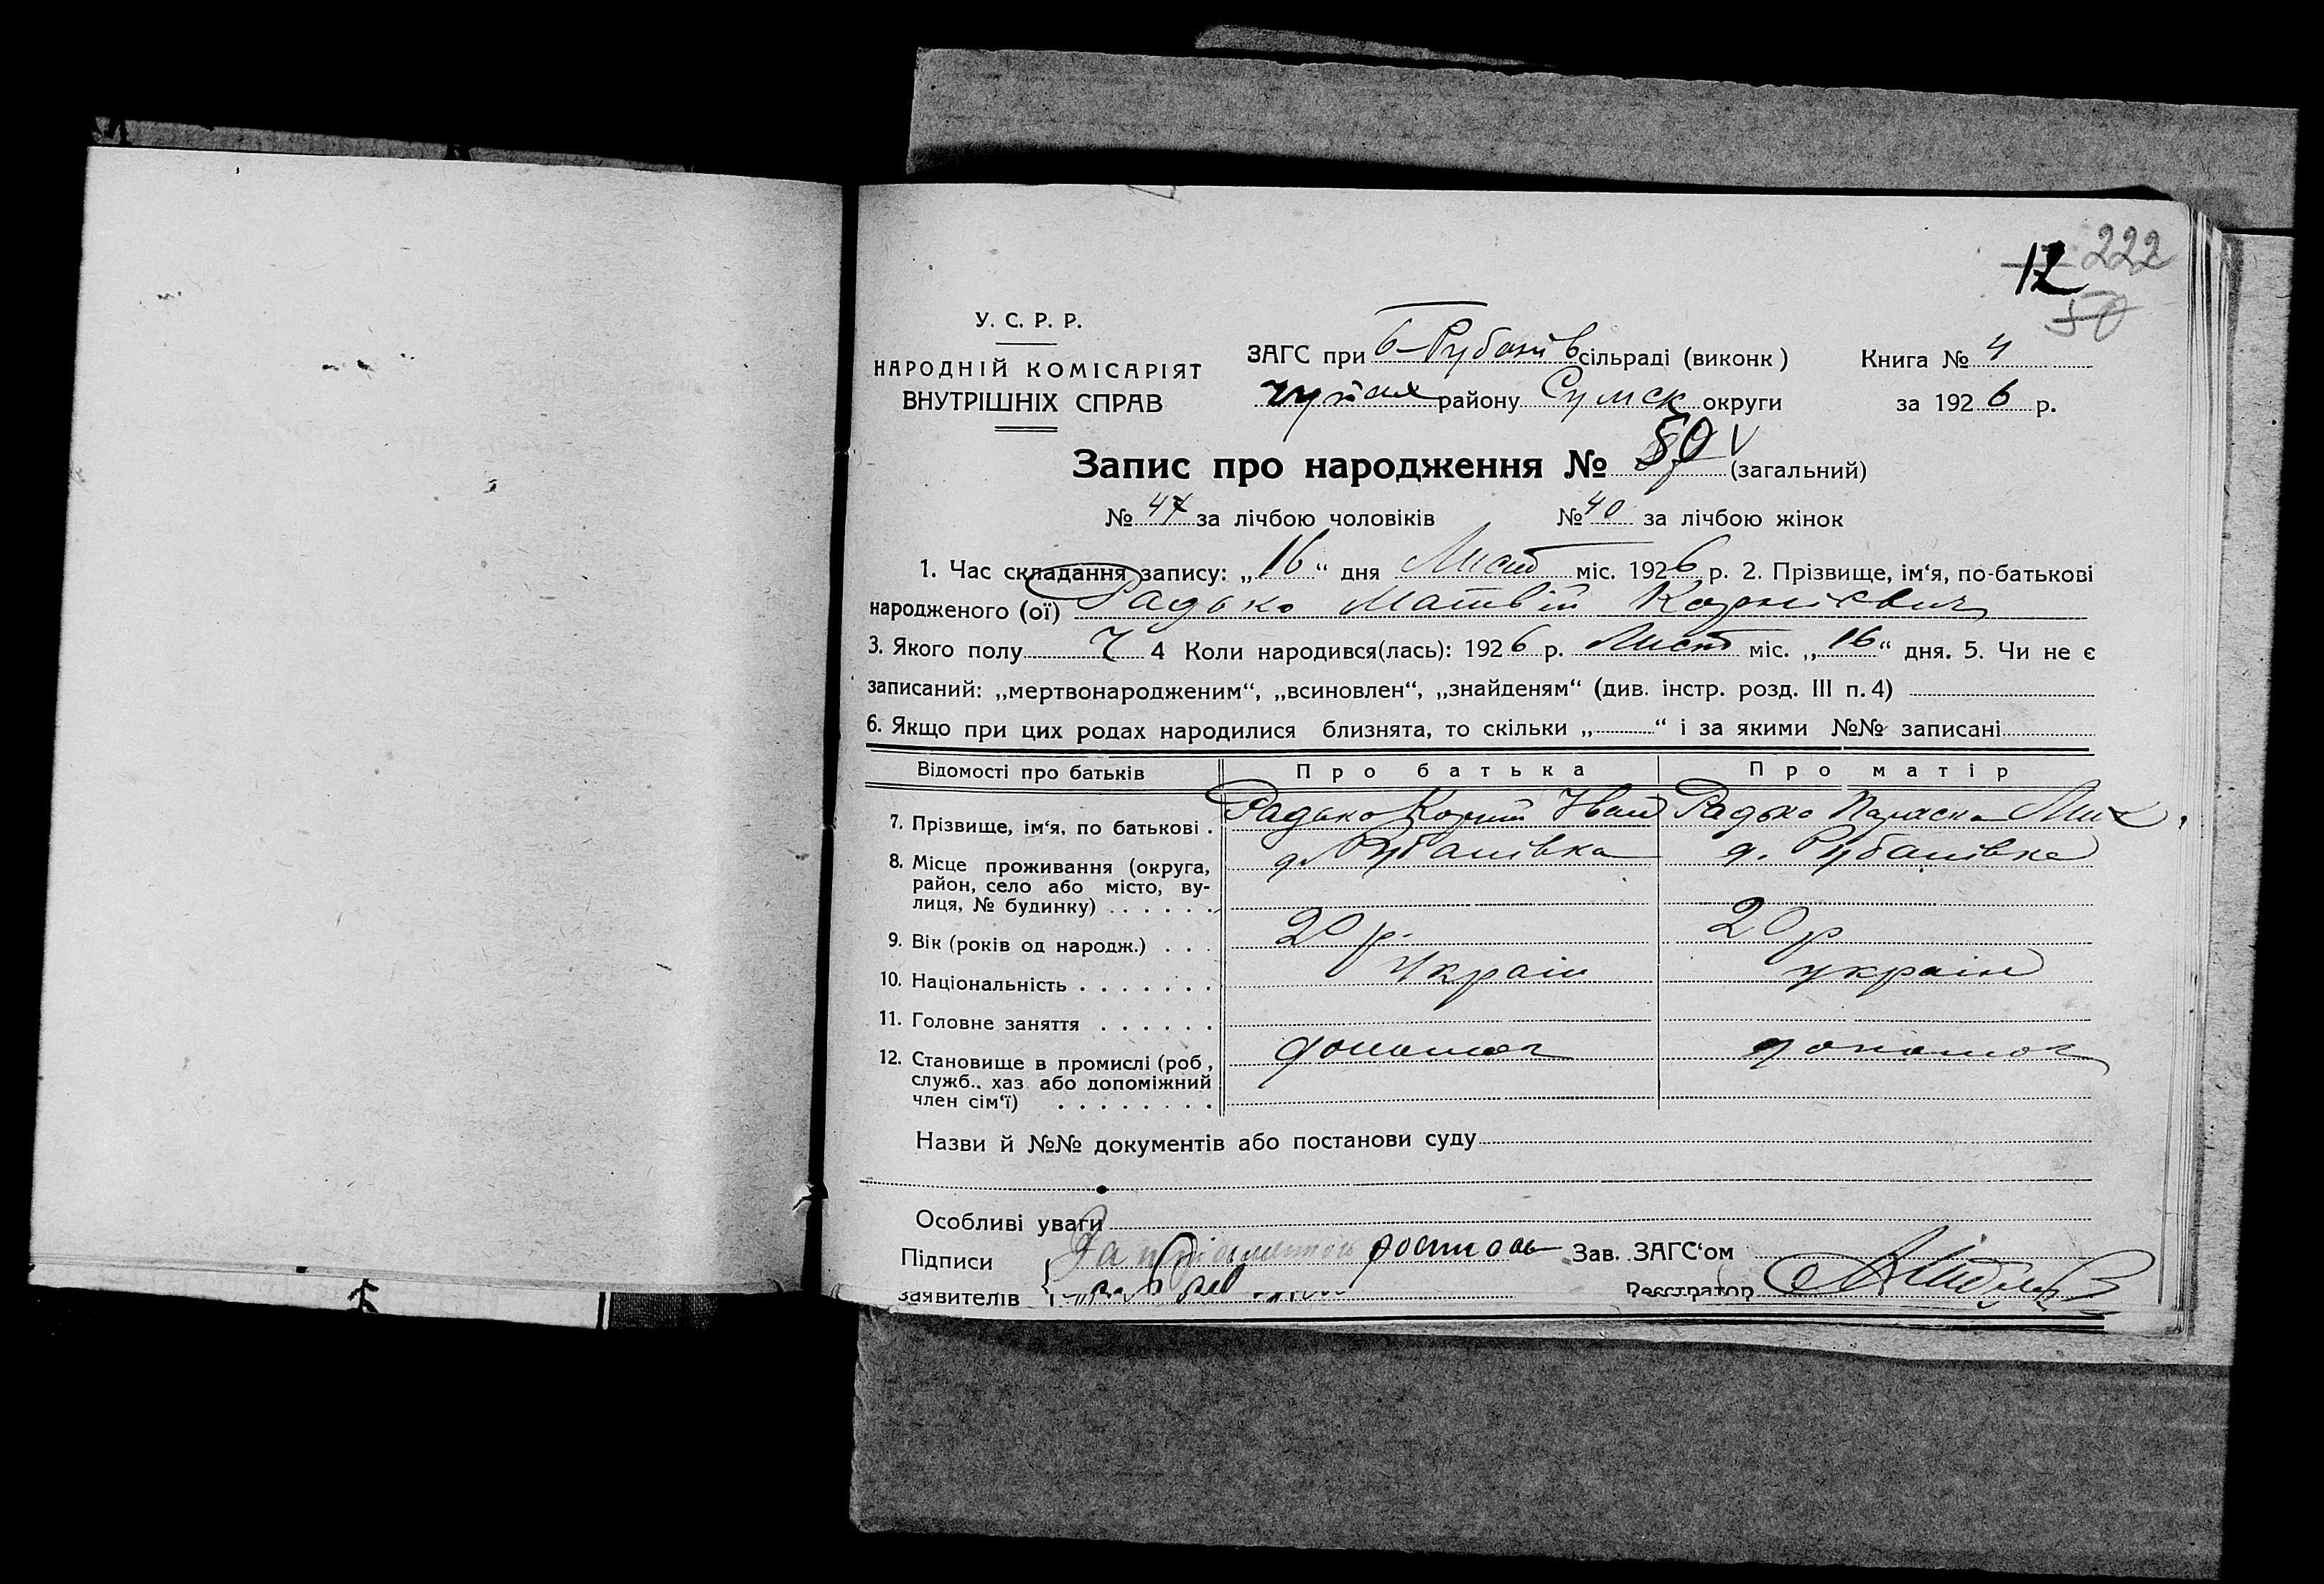 12 222
50
У. С. Р. Р.
НАРОДНІЙ КОМІСАРІЯТ
ВНУТРІШНІХ СПРАВ
ЗАГС при Б-Рубанів сільраді (виконк) Книга № 4
району Сумск округи за 1926 р.
Запис про народження № 50 (загальний)
№ 47 за лічбою чоловіків № 40 за лічбою жінок
1. Час складання запису: „16“ дня Лист міс. 1926 р. 2. Прізвище, ім‘я, по-батькові
народженого (ої) Радько Матвій Корнієвич
3. Якого полу Ч 4 Коли народився(лась): 1926 р. Лист міс. „16“ дня. 5. Чи не є
записаний: „мертвонародженим“, „всиновлен“, „знайденям“ (див. інстр. розд. III п. 4)
6. Якщо при цих родах народилися близнята, то скільки „ “ і за якими №№ записані
Відомості про батьків Про батька Про матір
7. Прізвище, ім‘я, по батькові . Радько Корній Іван Радько Параска Мих
8. Місце проживання (округа, д. Рубанівка д. Рубанівка
район, село або місто, ву-
лиця, № будинку) . . . . . .
9. Вік (років од народж.) . . . 20 р. 20 р
10. Національність . . . . . . . Україн україн
11. Головне заняття . . . . . .
12. Становище в промислі (роб, допомог допомог
служб., хаз або допоміжний
член сім‘ї) . . . . . . . .
Назви й №№ документів або постанови суду
Особливі уваги
Підписи За Зав. ЗАГС‘ом
заявителів Реєстратор